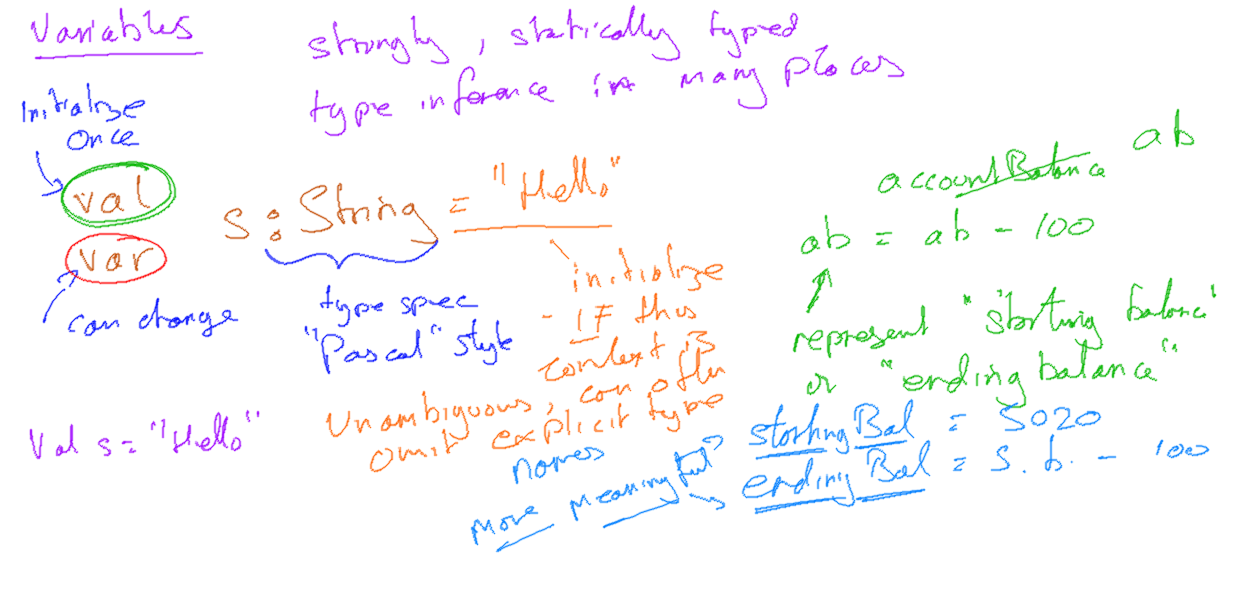 Variables
strongly, statically typed
type inference in many places
Initialize
once
val
var
can change
s : String = "Hello"
type spec
"Pascal" style
initialize
- IF this
context is
unambiguous, can often
omit explicit type
val s = "Hello"
accountBalance ab
ab = ab - 100
represent "starting balance"
or "ending balance"
names
more meaningful
startingBal = 5020
endingBal = s.b. - 100